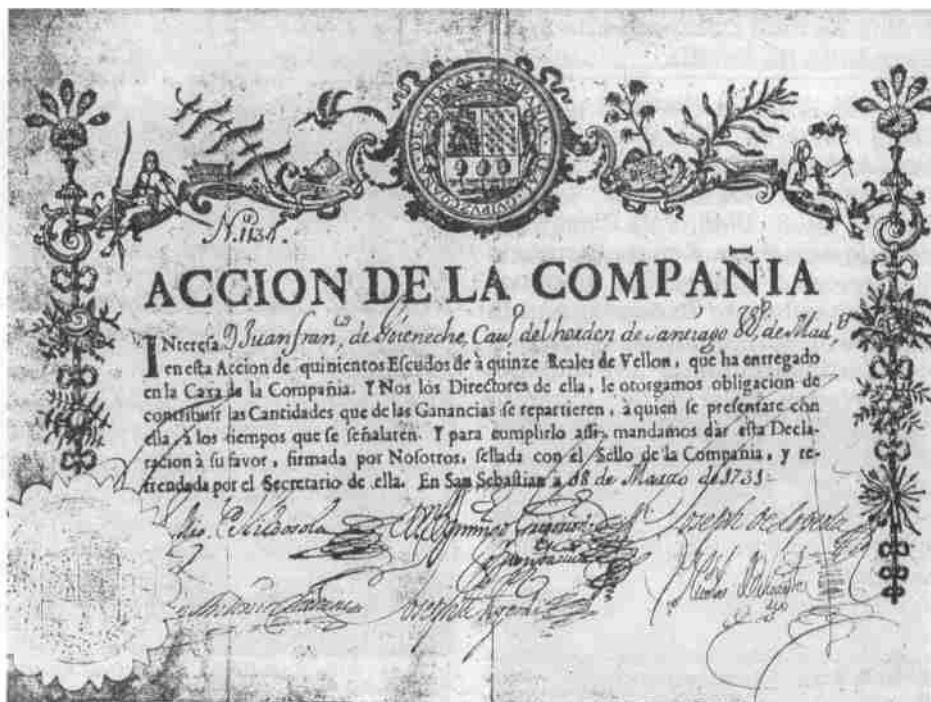 COMPAÑIA REAL GUIPVZCOANA DE CARACAS
N.º 1134.
ACCION DE LA COMPAÑIA
INteresa D Juan fran.co de Goieneche, Cau.º del horden de Santiago V.º de Mad.d
en esta Accion de quinientos Escudos de à quinze Reales de Vellon, que ha entregado
en la Caxa de la Compañia. Y Nos los Directores de ella, le otorgamos obligacion de
contribuir las Cantidades que de las Ganancias se repartieren, à quien se presentare con
ella, à los tiempos que se señalaren. Y para cumplirlo assi, mandamos dàr esta Decla-
racion à su favor, firmada por Nosotros, sellada con el Sello de la Compañia, y re-
frendada por el Secretario de ella. En San Sebastian a 18 de Marzo de 1731
Joseph de
Joseph